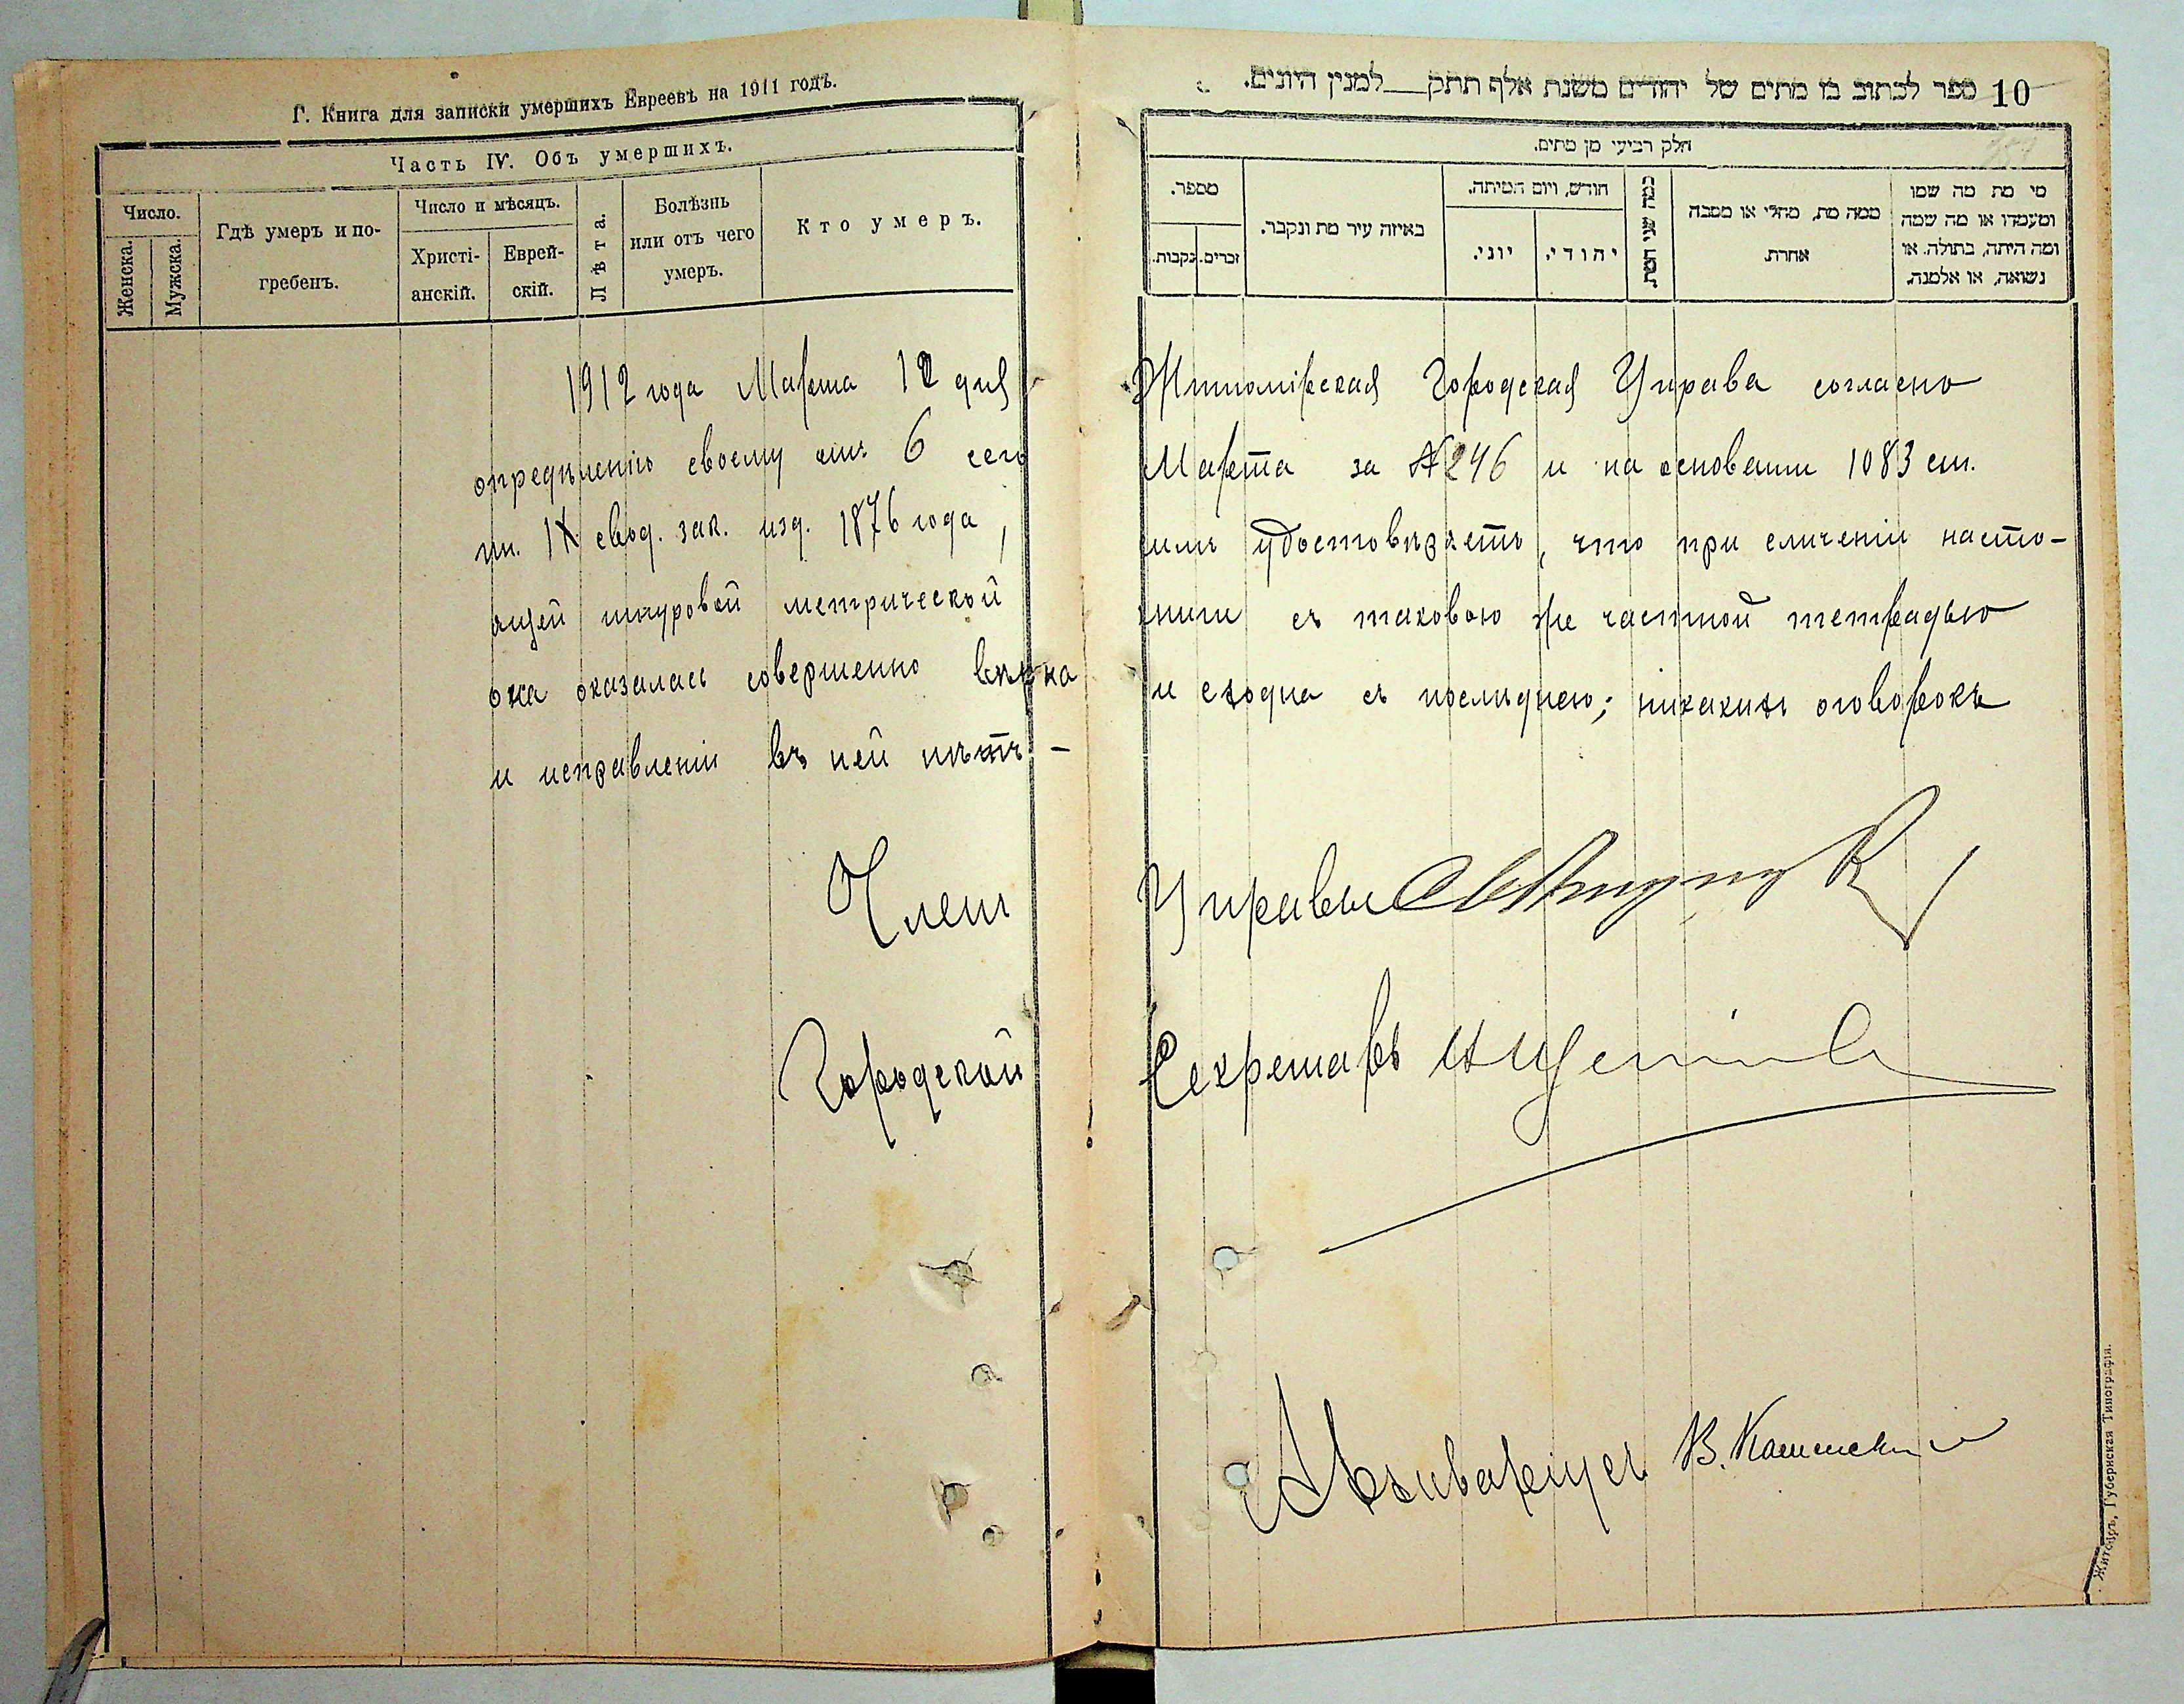 Г. Книга для записки умершихъ Евреевъ на 1911 годъ.
Часть IV. Объ умершихъ.
Число.
Женска.
Мужска.
Гдѣ умеръ и по-
гребенъ.
Число и мѣсяцъ.
Христі-
анскій.
Еврей-
скій.
Лѣта.
Болѣзнь
или отъ чего
умеръ.
Кто умеръ.
10 ספר לכתוב בו מתים של יהודים משנת אלף תתק__למנין היונים.
חלק רביעי מן מתים.
מספר.
זכרים.
נקבות.
באיזה עיר מת ונקבר.
חודש, ויום המיתה.
יוני.
יהודי.
כמה שני המת.
ממה מת, מחלי או מסבה
אחרת.
מי מת מה שמו
ומעמדו או מה שמה
ומה היתה, בתולה. או
נשואה, או אלמנה.
1912 года Марта 12 дня Житомірская Городская Управа согласно
опредѣленію своему отъ 6 сего Марта за №246 и на основаніи 1083 ст.
т. IX свод. зак. изд. 1876 года, симъ удостовѣряетъ, что при сличеніи насто-
ящей шнуровой метрической книги съ таковою же частной тетрадью
она оказалась совершенно вѣрна и сходна съ послѣднею; никакихъ оговорокъ
и исправленій въ ней нѣтъ –
Членъ Управы
Городской Секретарь
Архиваріусъ В.
Житоміръ, Губернская Типографія.